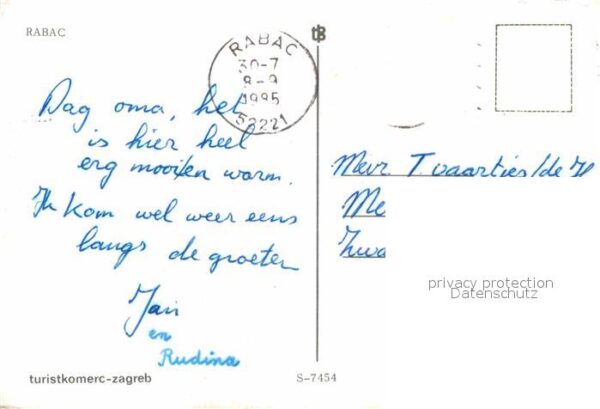 RABAC
RABAC
30-7
8-9
1985
52221
Dag oma, het
is hier heel
erg mooi/en warm.
Ik kom wel weer eens
langs de groeten
Jan
en
Rudina
turistkomerc-zagreb
S-7454
Mevr T vaarties/de H
Me
Zwa
privacy protection
Datenschutz